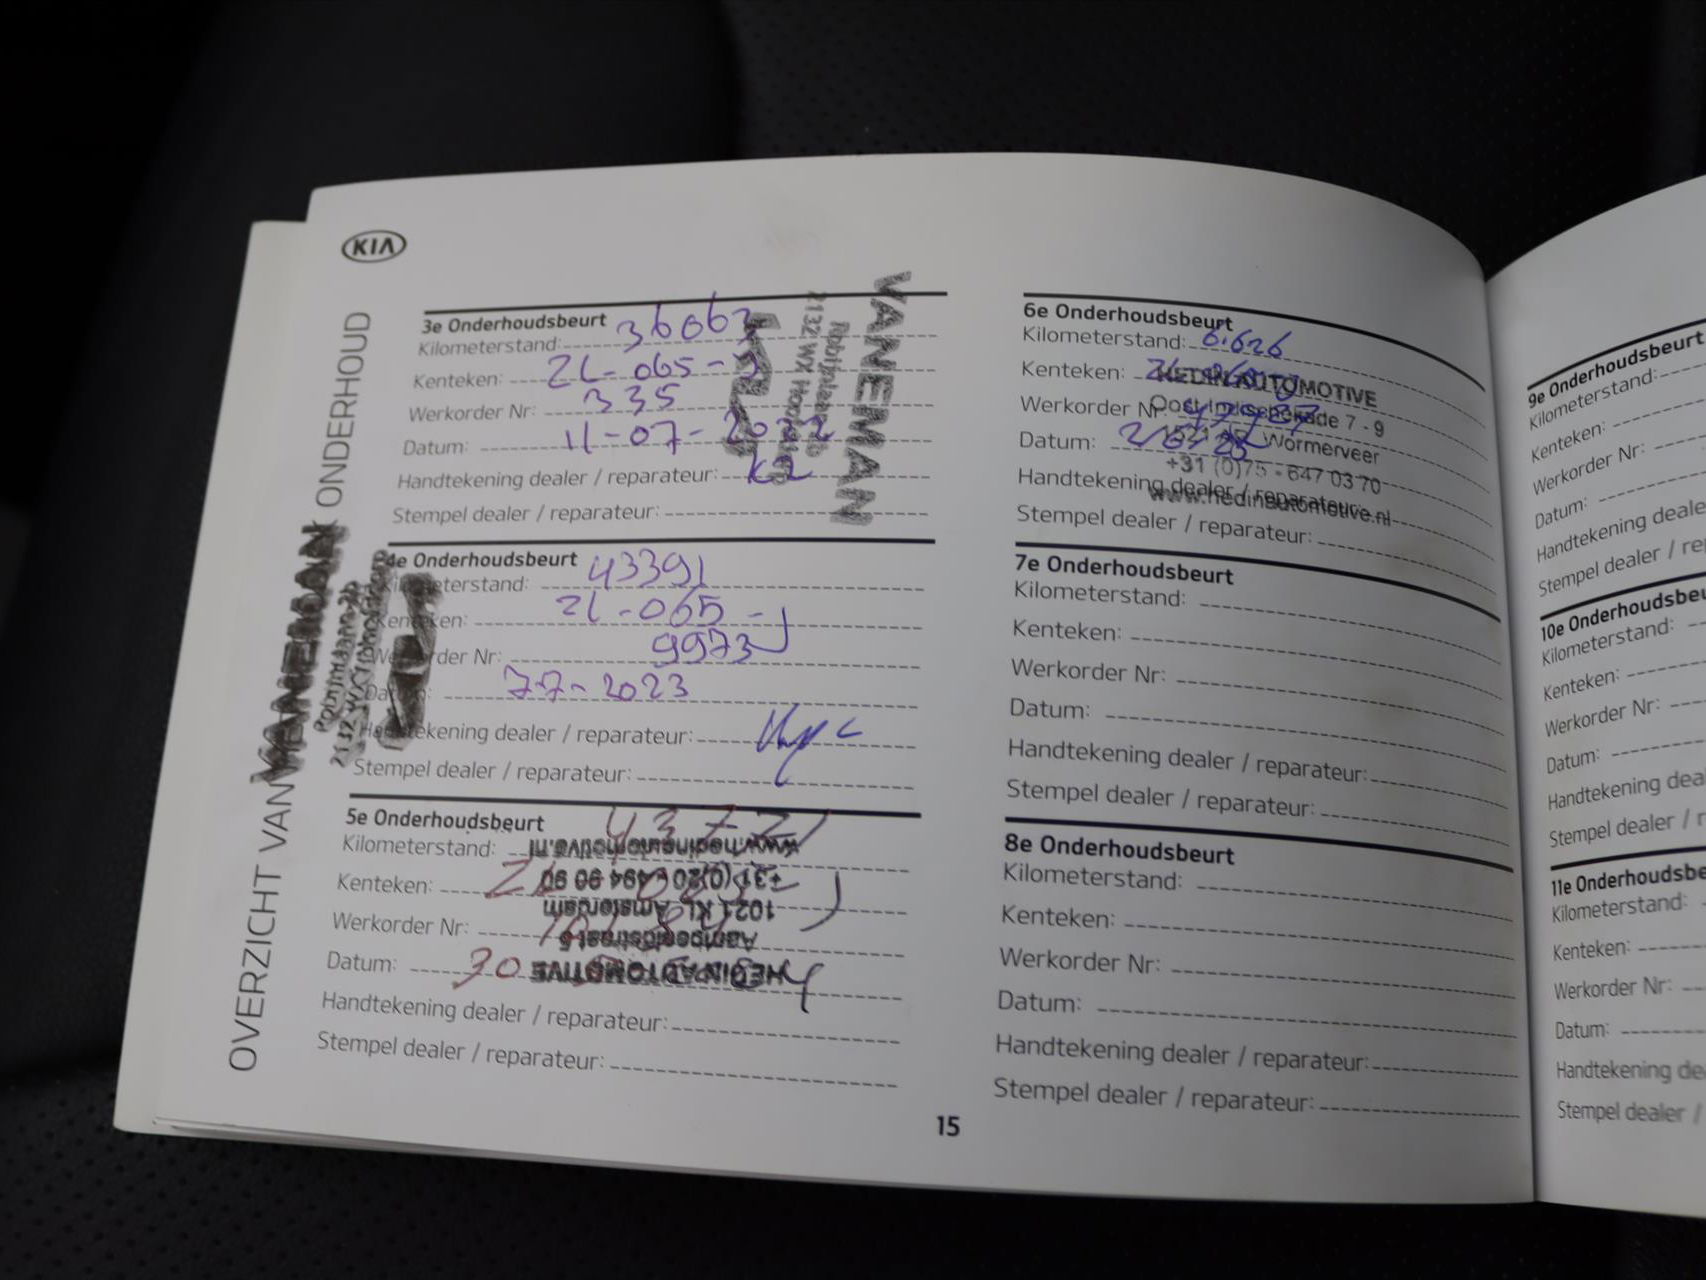 KIA
OVERZICHT VAN ONDERHOUD
3e Onderhoudsbeurt
Kilometerstand: 36063
Kenteken: ZL-065-J
Werkorder Nr: 335
Datum: 11-07-2022
Handtekening dealer / reparateur:
Stempel dealer / reparateur:
VANEMAN
2132 WX
4e Onderhoudsbeurt
Kilometerstand: 43391
Kenteken: ZL-065-J
Werkorder Nr: 9973
Datum: 7-7-2023
Handtekening dealer / reparateur:
Stempel dealer / reparateur:
5e Onderhoudsbeurt
Kilometerstand:
Kenteken:
Werkorder Nr:
Datum: 30
Handtekening dealer / reparateur:
Stempel dealer / reparateur:
HEDIN AUTOMOTIVE
1021 KL Amsterdam
+31 (0)20 - 494 90 90
www.hedinautomotive.nl
15
6e Onderhoudsbeurt
Kilometerstand: 6.626
Kenteken:
Werkorder Nr:
Datum:
Handtekening dealer / reparateur:
Stempel dealer / reparateur:
HEDIN AUTOMOTIVE
Oost-Indischekade 7 - 9
1521 Wormerveer
+31 (0)75 - 647 03 70
www.hedinautomotive.nl
7e Onderhoudsbeurt
Kilometerstand:
Kenteken:
Werkorder Nr:
Datum:
Handtekening dealer / reparateur:
Stempel dealer / reparateur:
8e Onderhoudsbeurt
Kilometerstand:
Kenteken:
Werkorder Nr:
Datum:
Handtekening dealer / reparateur:
Stempel dealer / reparateur:
9e Onderhoudsbeurt
Kilometerstand:
Kenteken:
Werkorder Nr:
Datum:
Handtekening deale
Stempel dealer / re
10e Onderhoudsbeu
Kilometerstand:
Kenteken:
Werkorder Nr:
Datum:
Handtekening dea
Stempel dealer / r
11e Onderhoudsbe
Kilometerstand:
Kenteken:
Werkorder Nr:
Datum:
Handtekening de
Stempel dealer /